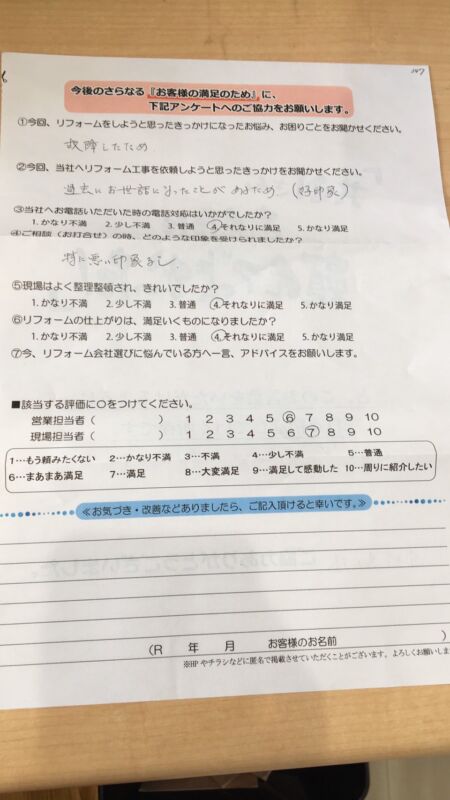 今後のさらなる『お客様の満足のため』に、
下記アンケートへのご協力をお願いします。
①今回、リフォームをしようと思ったきっかけになったお悩み、お困りごとをお聞かせください。
故障したため
②今回、当社へリフォーム工事を依頼しようと思ったきっかけをお聞かせください。
過去にお世話になったことがあるため (好印象)
③当社へお電話いただいた時の電話対応はいかがでしたか?
1. かなり不満 2. 少し不満 3. 普通 4. それなりに満足 5. かなり満足
④ご相談(お打合せ)の時、どのような印象を受けられましたか?
特に悪い印象なし.
⑤現場はよく整理整頓され、きれいでしたか?
1. かなり不満 2. 少し不満 3. 普通 4. それなりに満足 5. かなり満足
⑥リフォームの仕上がりは、満足いくものになりましたか?
1. かなり不満 2. 少し不満 3. 普通 4. それなりに満足 5. かなり満足
⑦今、リフォーム会社選びに悩んでいる方へ一言、アドバイスをお願いします。
■該当する評価に〇をつけてください。
営業担当者( ) 1 2 3 4 5 6 7 8 9 10
現場担当者( ) 1 2 3 4 5 6 7 8 9 10
1…もう頼みたくない 2…かなり不満 3…不満 4…少し不満 5…普通
6…まあまあ満足 7…満足 8…大変満足 9…満足して感動した 10…周りに紹介したい
≪お気づき・改善などありましたら、ご記入頂けると幸いです。≫
(R 年 月 お客様のお名前 )
※HPやチラシなどに匿名で掲載させていただくことがございます。よろしくお願いしま